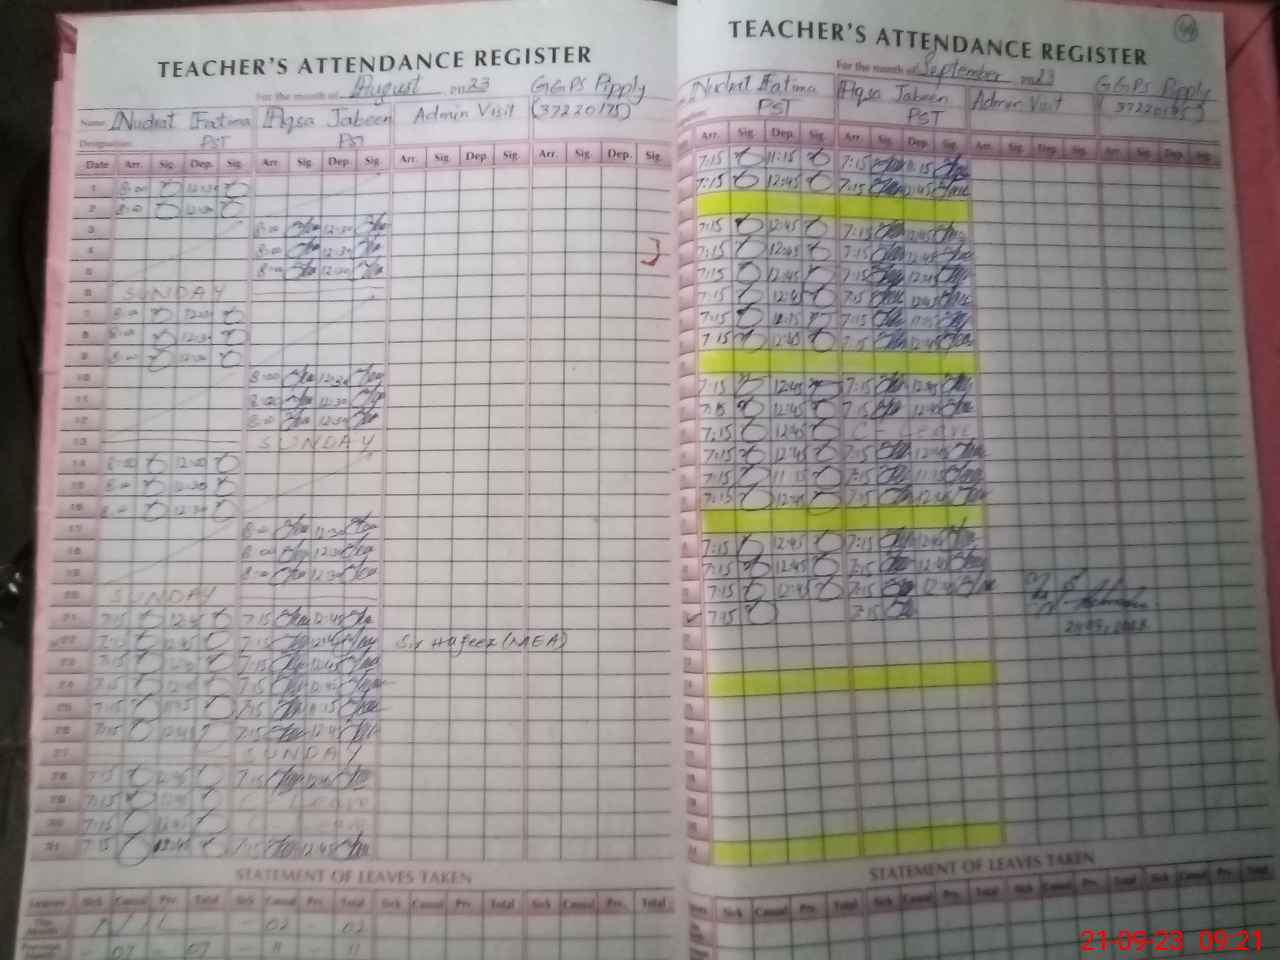 TEACHER'S ATTENDANCE REGISTER
For the month of August 2023 GGPS Pipply
Name Nudrat Fatima Aqsa Jabeen Admin Visit (37220175)
Designation PST PST
Date Arr. Sig. Dep. Sig. Arr. Sig. Dep. Sig. Arr. Sig. Dep. Sig. Arr. Sig. Dep. Sig.
1 8:00 12:30
2 8:00 12:30
3 8:00 12:30
4 8:00 12:30
5 8:00 12:30
6 SUNDAY
7 8:00 12:30
8 8:00 12:30
9 8:00 12:30
10 8:00 12:30
11 8:00 12:30
12 8:00 12:30
13 SUNDAY
14 8:00 12:00
15 8:00 12:30
16 8:00 12:30
17 8:00 12:30
18 8:00 12:30
19 8:00 12:30
20 SUNDAY
21 7:15 12:45 7:15 12:45
22 7:15 12:45 7:15 12:45 Sir Hafeez (MEA)
23 7:15 12:45 7:15 12:45
24 7:15 12:45 7:15 12:45
25 7:15 11:15 7:15 11:15
26 7:15 12:45 7:15 12:45
27 SUNDAY
28 7:15 12:45 7:15 12:45
29 7:15 12:45 C Leave
30 7:15 12:45
31 7:15 12:45 7:15 12:45
STATEMENT OF LEAVES TAKEN
Leaves Sick Casual Prv. Total Sick Casual Prv. Total Sick Casual Prv. Total Sick Casual Prv. Total
This Month NIL - 02 - 02
Previous Month - 07 - 07 - 11 11
44
TEACHER'S ATTENDANCE REGISTER
For the month of September 2023 GGPS Pipply
Nudrat Fatima Aqsa Jabeen Admin Visit (37220175)
PST PST
Arr. Sig. Dep. Sig. Arr. Sig. Dep. Sig. Arr. Sig. Dep. Sig. Arr. Sig. Dep. Sig.
7:15 11:15 7:15 11:15
7:15 12:45 7:15 12:45
7:15 12:45 7:15 12:45
7:15 12:45 7:15 12:45
7:15 12:45 7:15 12:45
7:15 12:45 7:15 12:45
7:15 7:15
7:15 12:45 7:15 12:45
7:15 12:45 7:15 12:45
7:15 12:45 7:15 12:45
7:15 12:45 C - Leave
7:15 12:45 7:15 12:45
7:15 11:15 7:15 11:15
7:15 12:45 7:15 12:45
7:15 12:45 7:15 12:45
7:15 12:45 7:15 12:45
7:15 12:45 7:15 12:45
7:15 7:15
STATEMENT OF LEAVES TAKEN
Sick Casual Prv. Total Sick Casual Prv. Total Sick Casual Prv. Total Sick Casual Prv. Total
21-09-23 09:21